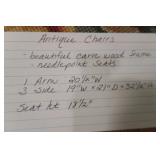 Antique Chairs
beautiful carve wood frame
needlepoint seats
1 Arm 20½"W
3 Side 19"W x 21"D x 32½"H
Seat ht 18½"